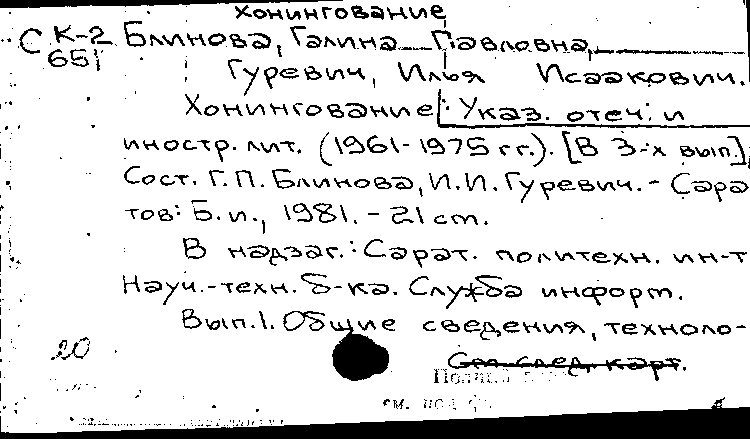 хонингование
С К-2 Блинова, Галина Павловна,
651 Гуревич, Илья Исаакович.
Хонингование: Указ. отеч. и
иностр. лит. (1961-1975 гг.). [В 3-х вып.]
Сост. Г.П. Блинова, И.И. Гуревич. - Сара
тов: Б. и., 1981. - 21 cm.
В надзаг.: Сарат. политехн. ин-т
Науч.-техн. б-ка. Служба информ.
Вып.1. Общие сведения, техноло-
20
См. след. карт.
см.